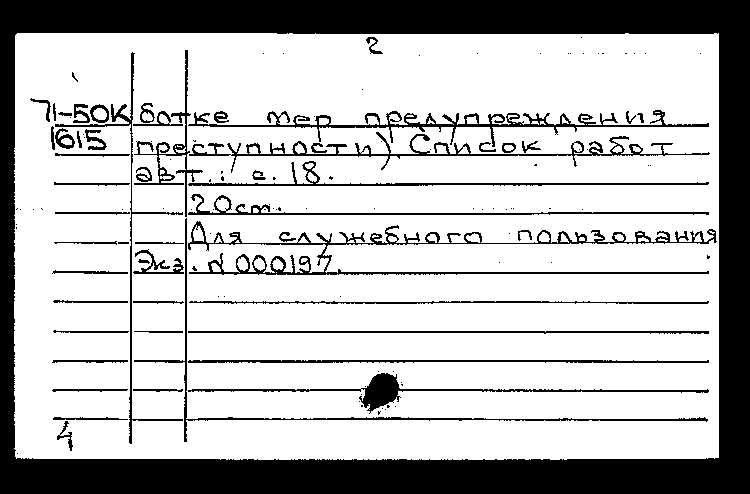 2
71-50К ботке мер предупреждения
1615 преступности). Список работ
авт.: с. 18.
20 см.
Для служебного пользования
Экз. N 000197.
4